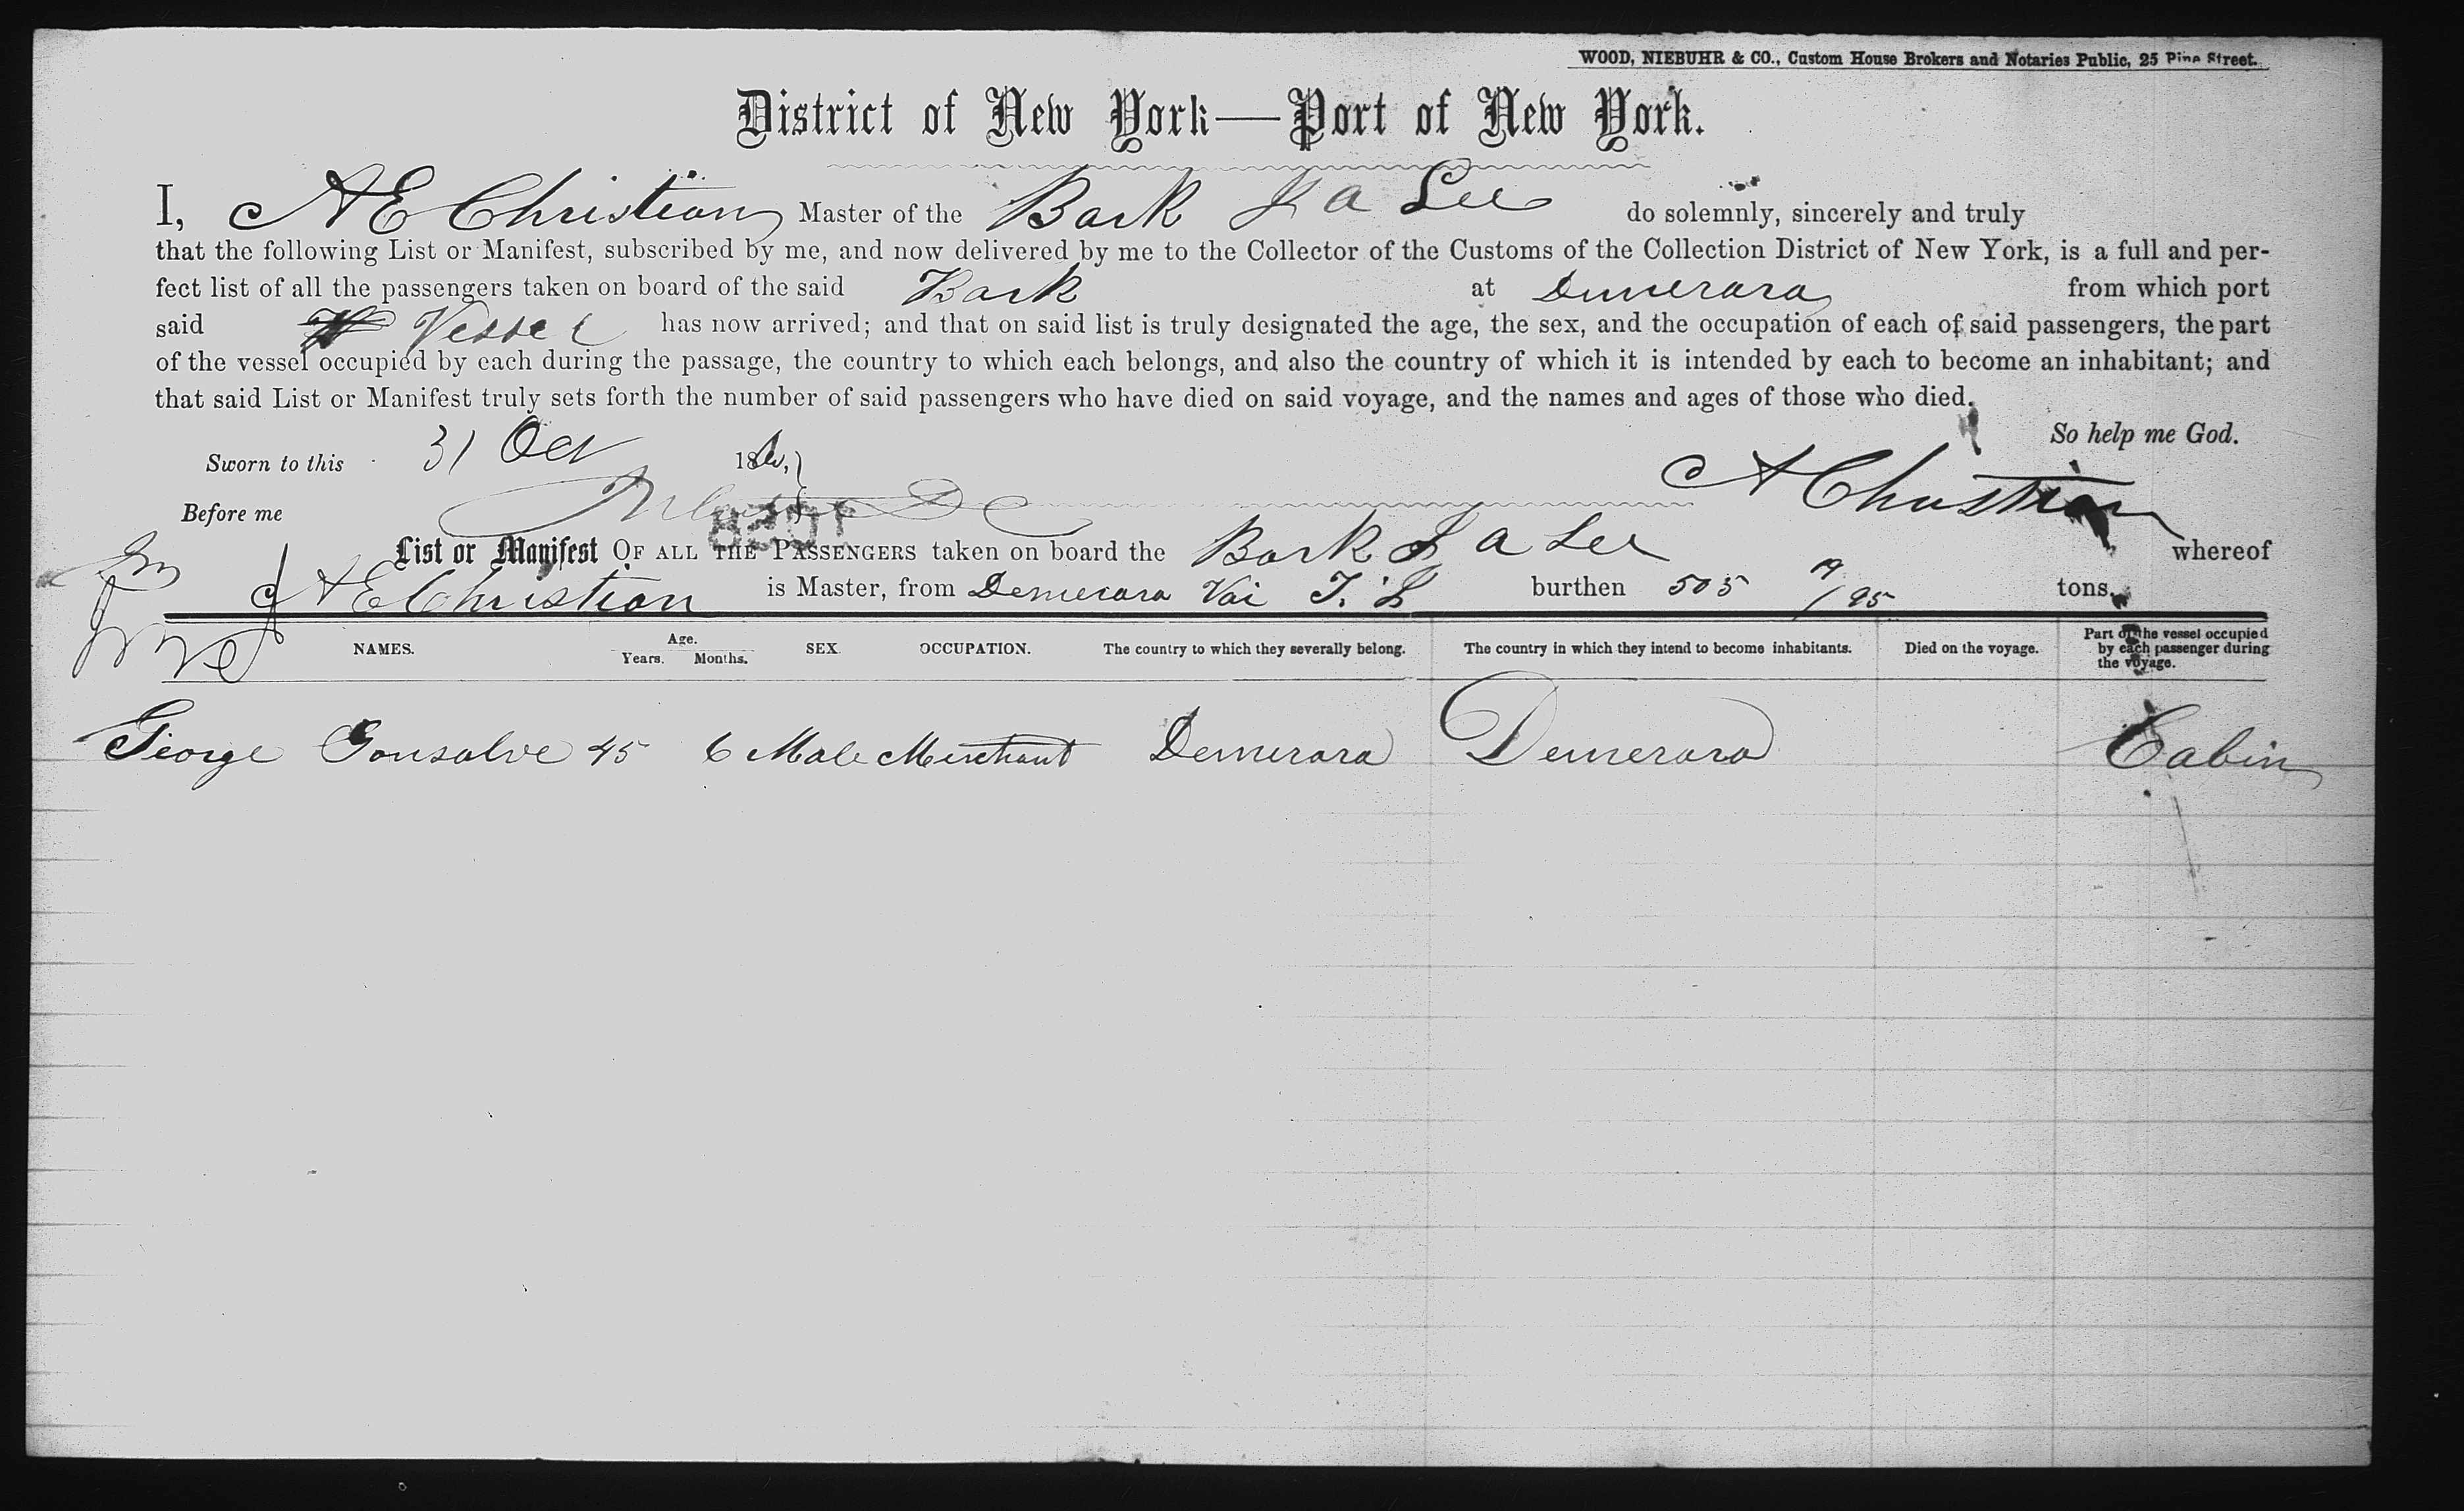 WOOD, NIEBUHR & CO., Custom House Brokers and Notaries Public, 25 Pine Street.
District of New York—Port of New York.
I, A E Christian Master of the Bark J A Lee do solemnly, sincerely and truly
that the following List or Manifest, subscribed by me, and now delivered by me to the Collector of the Customs of the Collection District of New York, is a full and per-
fect list of all the passengers taken on board of the said Bark at Demerara from which port
said Vessel has now arrived; and that on said list is truly designated the age, the sex, and the occupation of each of said passengers, the part
of the vessel occupied by each during the passage, the country to which each belongs, and also the country of which it is intended by each to become an inhabitant; and
that said List or Manifest truly sets forth the number of said passengers who have died on said voyage, and the names and ages of those who died.
So help me God.
Sworn to this 31 Oct 18
A Christian
Before me
List or Manifest OF ALL THE PASSENGERS taken on board the Bark J A Lee whereof
A E Christian is Master, from Demerara burthen 505 /95 tons.
NAMES. Age. Years. Months. SEX. OCCUPATION. The country to which they severally belong. The country in which they intend to become inhabitants. Died on the voyage. Part of the vessel occupied by each passenger during the voyage.
George Gonsalve 45 6 Male Merchant Demerara Demerara Cabin